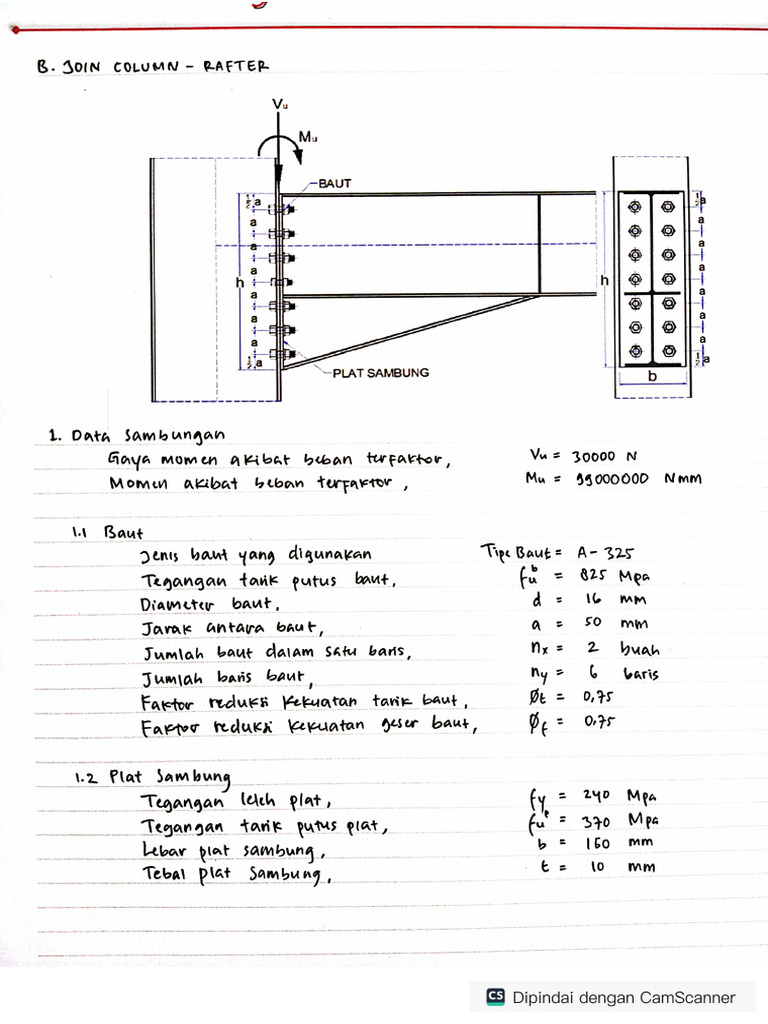 B. JOIN COLUMN - RAFTER
Vu
Mu
BAUT
½a
a
a
a
h
a
a
a
½a
PLAT SAMBUNG
½a
a
a
a
h
a
a
a
½a
b
1. Data Sambungan
Gaya momen akibat beban terfaktor, Vu = 30000 N
Momen akibat beban terfaktor, Mu = 99000000 Nmm
1.1 Baut
Jenis baut yang digunakan Tipe Baut = A-325
Tegangan tarik putus baut, fu^b = 825 Mpa
Diameter baut, d = 16 mm
Jarak antara baut, a = 50 mm
Jumlah baut dalam satu baris, nx = 2 buah
Jumlah baris baut, ny = 6 baris
Faktor reduksi kekuatan tarik baut, Øt = 0,75
Faktor reduksi kekuatan geser baut, Øf = 0,75
1.2 Plat Sambung
Tegangan leleh plat, fy = 240 Mpa
Tegangan tarik putus plat, fu^p = 370 Mpa
Lebar plat sambung, b = 160 mm
Tebal plat Sambung, t = 10 mm
CS Dipindai dengan CamScanner